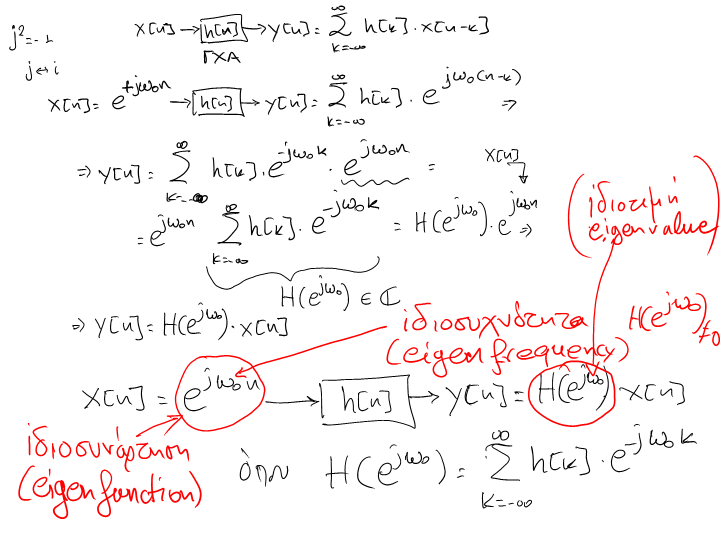 j²=-1
j↔i
x[n] → h[n] → y[n] = ∑_{k=-∞}^{∞} h[k]·x[n-k]
ΓΧΑ
x[n] = e^{+jω₀n} → h[n] → y[n] = ∑_{k=-∞}^{∞} h[k]·e^{jω₀(n-k)} ⇒
⇒ y[n] = ∑_{k=-∞}^{∞} h[k]·e^{-jω₀k}·e^{jω₀n} =
x[n]
= e^{jω₀n} ∑_{k=-∞}^{∞} h[k]·e^{-jω₀k} = H(e^{jω₀})·e^{jω₀n} ⇒
(ιδιοτιμή
eigenvalue)
H(e^{jω₀}) ∈ ℂ
⇒ y[n] = H(e^{jω₀})·x[n]
ιδιοσυχνότητα
(eigenfrequency)
H(e^{jω₀}) ≠0
x[n] = e^{jω₀n} → h[n] → y[n] = H(e^{jω₀})·x[n]
ιδιοσυνάρτηση
(eigenfunction)
όπου H(e^{jω₀}) = ∑_{k=-∞}^{∞} h[k]·e^{-jω₀k}